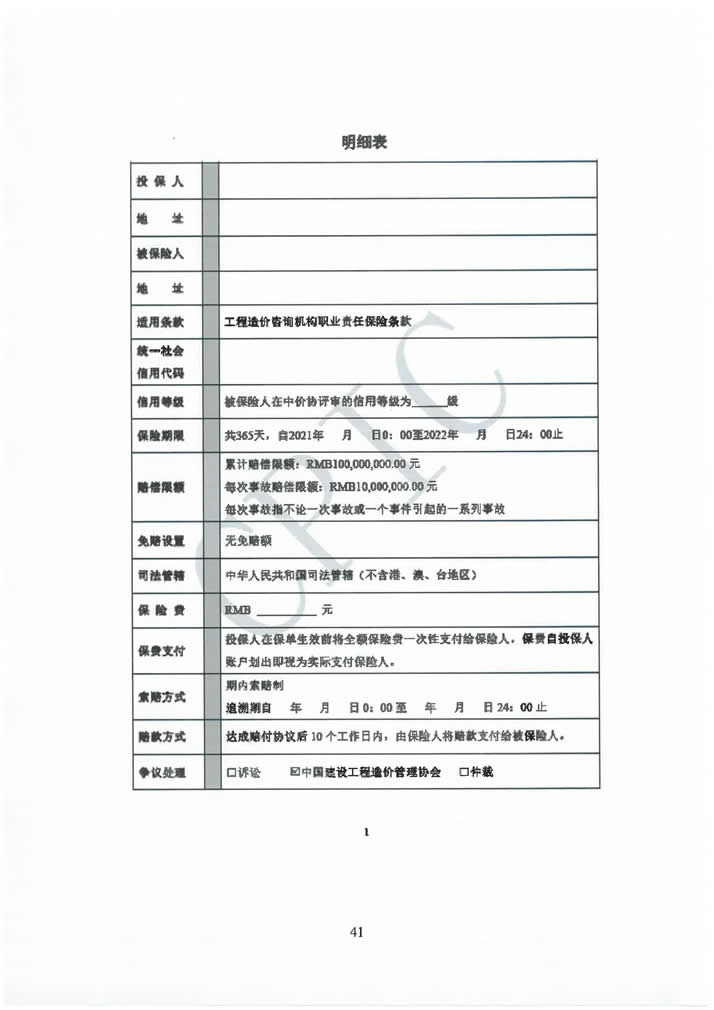 明细表
投 保 人
地 址
被保险人
地 址
适用条款 工程造价咨询机构职业责任保险条款
统一社会
信用代码
信用等级 被保险人在中价协评审的信用等级为______级
保险期限 共365天，自2021年 月 日0：00至2022年 月 日24：00止
赔偿限额 累计赔偿限额：RMB100,000,000.00 元
每次事故赔偿限额：RMB10,000,000.00 元
每次事故指不论一次事故或一个事件引起的一系列事故
免赔设置 无免赔额
司法管辖 中华人民共和国司法管辖（不含港、澳、台地区）
保 险 费 RMB __________ 元
保费支付 投保人在保单生效前将全额保险费一次性支付给保险人，保费自投保人
账户划出即视为实际支付保险人。
索赔方式 期内索赔制
追溯期自 年 月 日 0：00 至 年 月 日 24：00 止
赔款方式 达成赔付协议后 10 个工作日内，由保险人将赔款支付给被保险人。
争议处理 □诉讼 ☑中国建设工程造价管理协会 □仲裁
CPIC
1
41